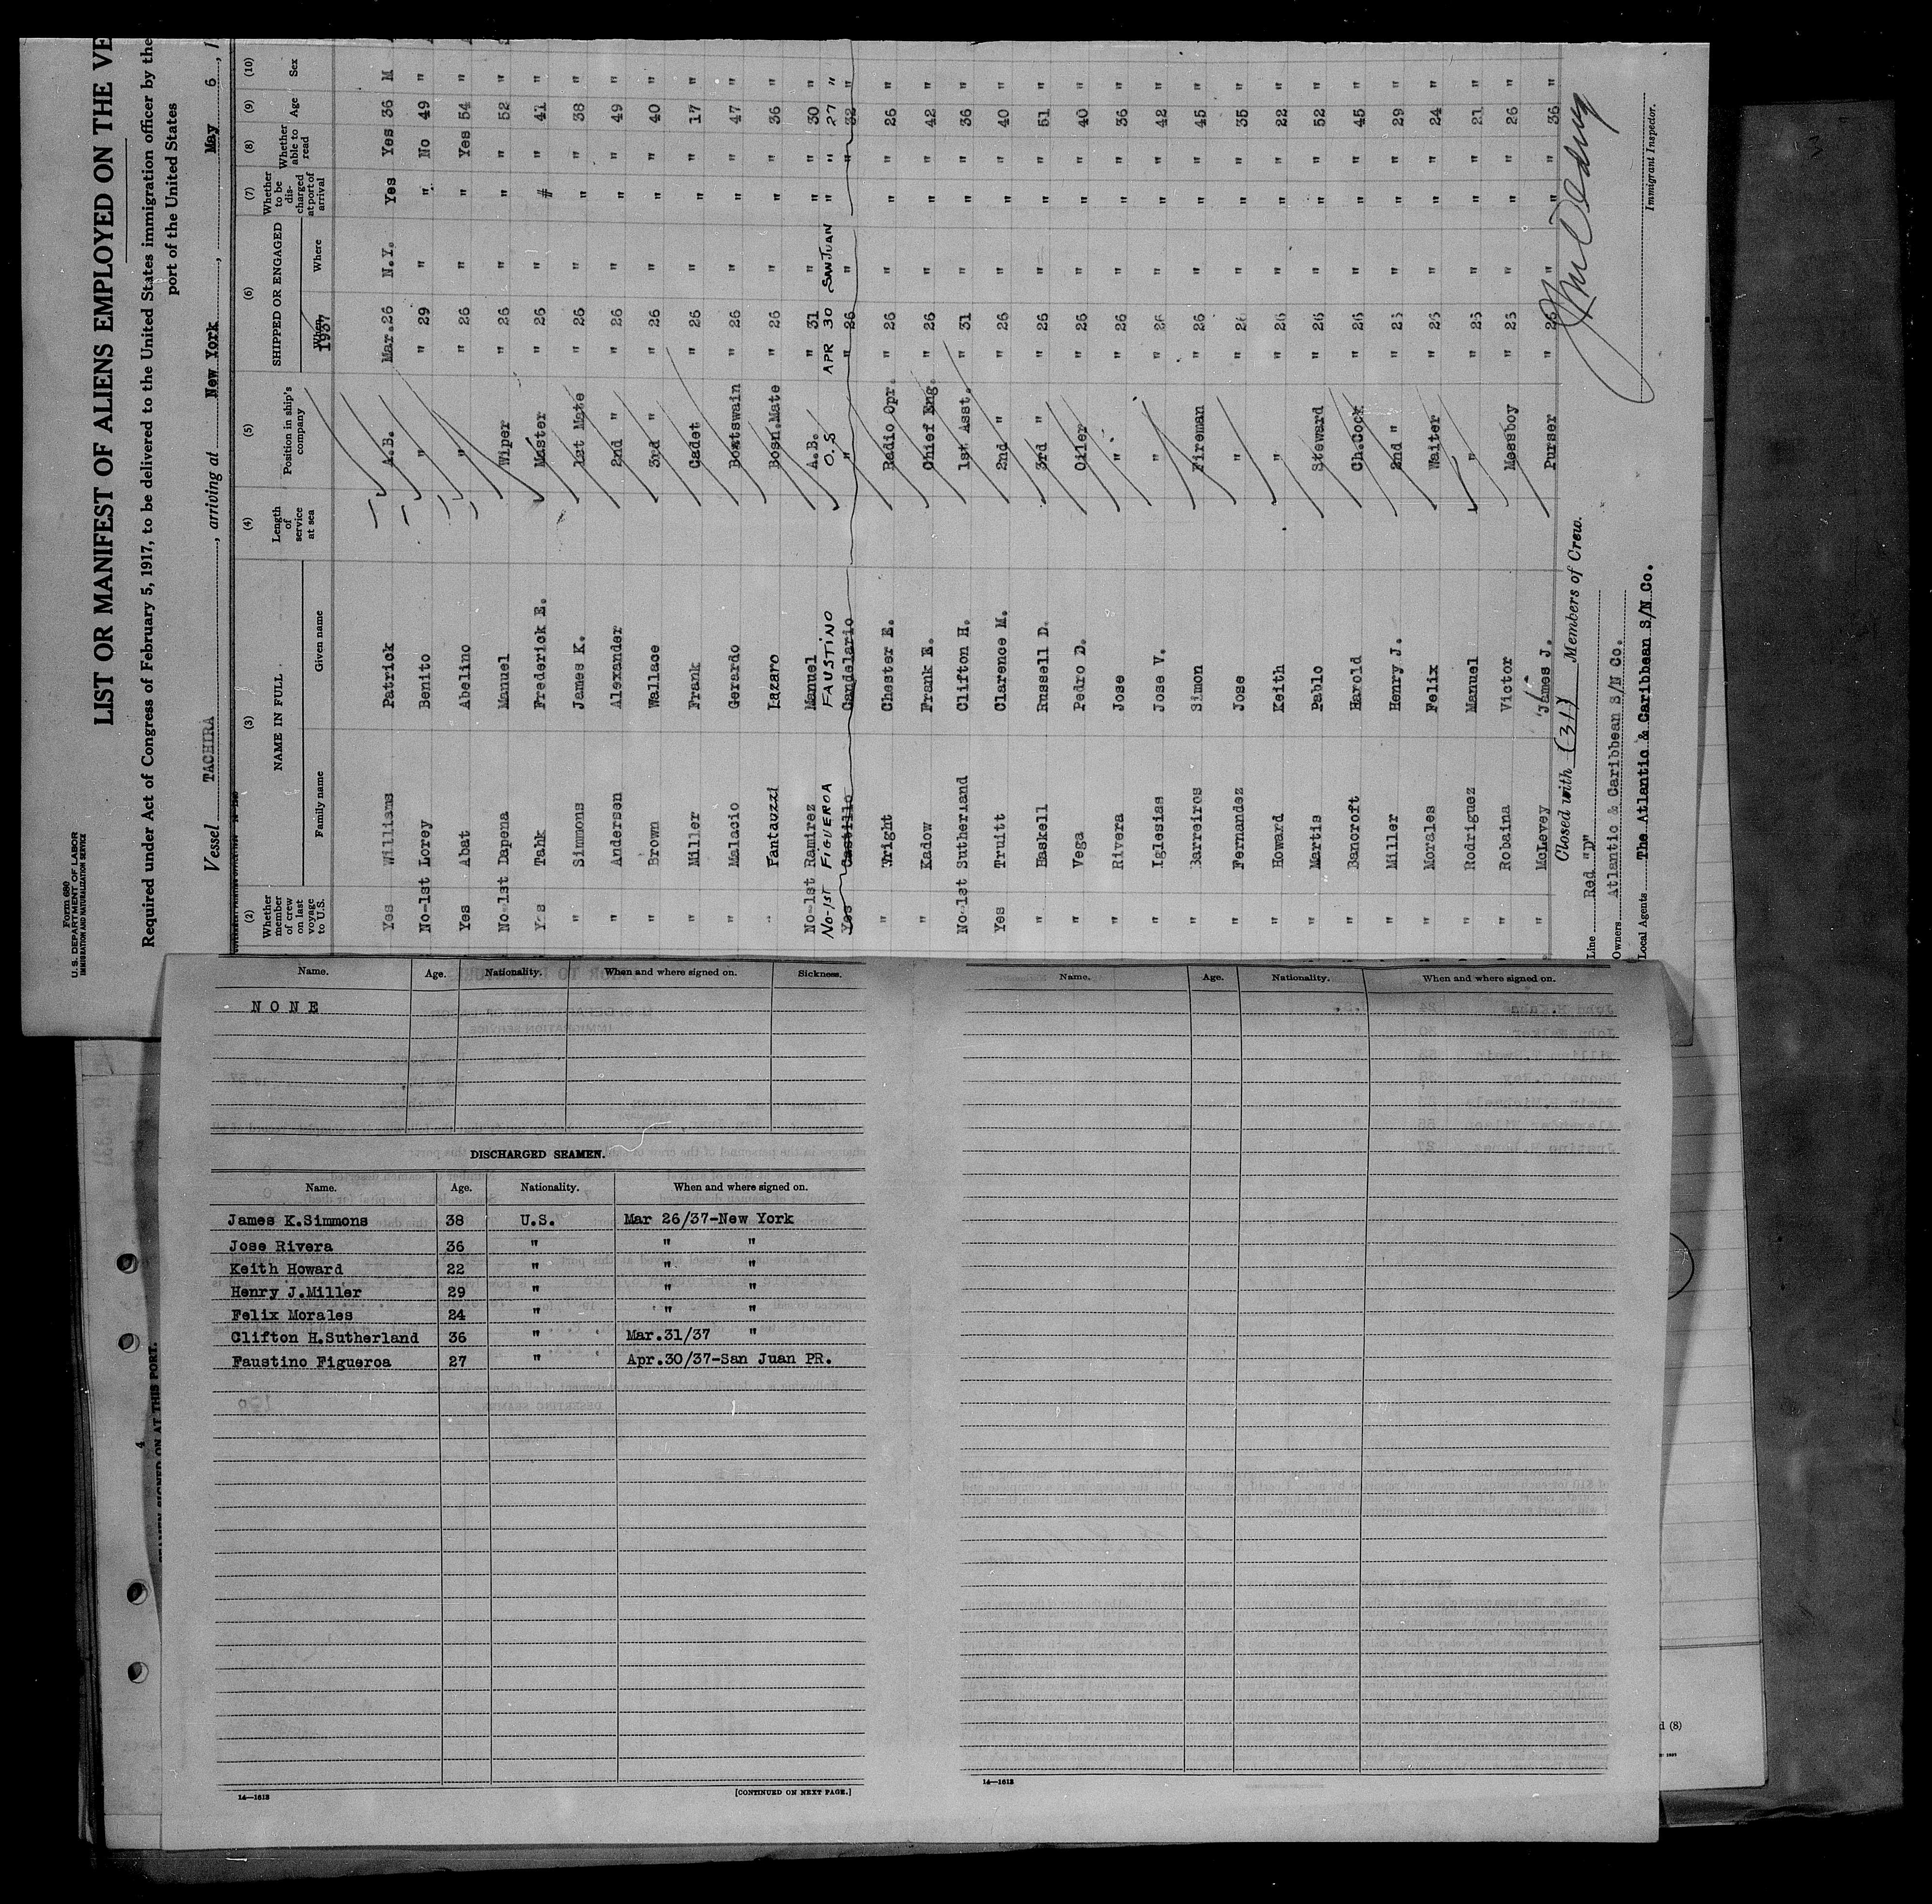 Form 680
U. S. DEPARTMENT OF LABOR
IMMIGRATION AND NATURALIZATION SERVICE
LIST OR MANIFEST OF ALIENS EMPLOYED ON THE VE
Required under Act of Congress of February 5, 1917, to be delivered to the United States immigration officer by the
port of the United States
Vessel TACHIRA, arriving at New York, May 6, 1
(2) (3) (4) (5) (6) (7) (8) (9) (10)
Whether member of crew on last voyage to U.S. NAME IN FULL Family name Given name Length of service at sea Position in ship's company SHIPPED OR ENGAGED When Where Whether to be discharged at port of arrival Whether able to read Age Sex
1937
Yes Williams Patrick A.B. Mar.26 N.Y. Yes Yes 36 M
No-1st Lorey Benito " " 29 " " No 49 "
Yes Abat Abelino " " 26 " " Yes 54 "
No-1st Lapena Manuel Wiper " 26 " " " 52 "
Yes Tahk Frederick E. Master " 26 " # " 41 "
" Simmons James K. 1st Mate " 26 " " " 38 "
" Andersen Alexander 2nd " " 26 " " " 49 "
" Brown Wallace 3rd " " 26 " " " 40 "
" Miller Frank Cadet " 26 " " " 17 "
" Malacio Gerardo Boatswain " 26 " " " 47 "
" Fantauzzi Lazaro Bosn.Mate " 26 " " " 36 "
No-1st Ramirez Manuel A.B. " 31 " " " 30 "
No-1st FIGUEROA FAUSTINO O.S APR 30 SAN JUAN " " 27 "
Yes Castillo Candelario " " 26 " " " 32 "
" Wright Chester E. Radio Opr. " 26 " " " 26 "
" Kadow Frank E. Chief Eng. " 26 " " " 42 "
No-1st Sutherland Clifton H. 1st Asst. " 31 " " " 36 "
Yes Truitt Clarence M. 2nd " " 26 " " " 40 "
" Haskell Russell D. 3rd " " 26 " " " 51 "
" Vega Pedro D. Oiler " 26 " " " 40 "
" Rivera Jose " " 26 " " " 36 "
" Iglesias Jose V. " " 26 " " " 42 "
" Barreiros Simon Fireman " 26 " " " 45 "
" Fernandez Jose " " 26 " " " 35 "
" Howard Keith " " 26 " " " 22 "
" Martis Pablo Steward " 26 " " " 52 "
" Bancroft Harold Ch.Cook " 26 " " " 45 "
" Miller Henry J. 2nd " " 26 " " " 29 "
" Morales Felix Waiter " 26 " " " 24 "
" Rodriguez Manuel " " 26 " " " 21 "
" Robaina Victor Messboy " 26 " " " 26 "
" McLevey James J. Purser " 26 " " " 36 "
Closed with (31) Members of Crew.
Line Red "D"
Owners Atlantic & Caribbean S/N Co.
Local Agents The Atlantic & Caribbean S/N Co.
Immigrant Inspector.
Name. Age. Nationality. When and where signed on. Sickness.
NONE
DISCHARGED SEAMEN.
Name. Age. Nationality. When and where signed on.
James K.Simmons 38 U.S. Mar 26/37-New York
Jose Rivera 36 " " "
Keith Howard 22 " " "
Henry J.Miller 29 " " "
Felix Morales 24 " " "
Clifton H.Sutherland 36 " Mar.31/37 "
Faustino Figueroa 27 " Apr.30/37-San Juan PR.
14—1613
[CONTINUED ON NEXT PAGE.]
Name. Age. Nationality. When and where signed on.
14—1613
4
SEAMEN SIGNED ON AT THIS PORT.
d (8)